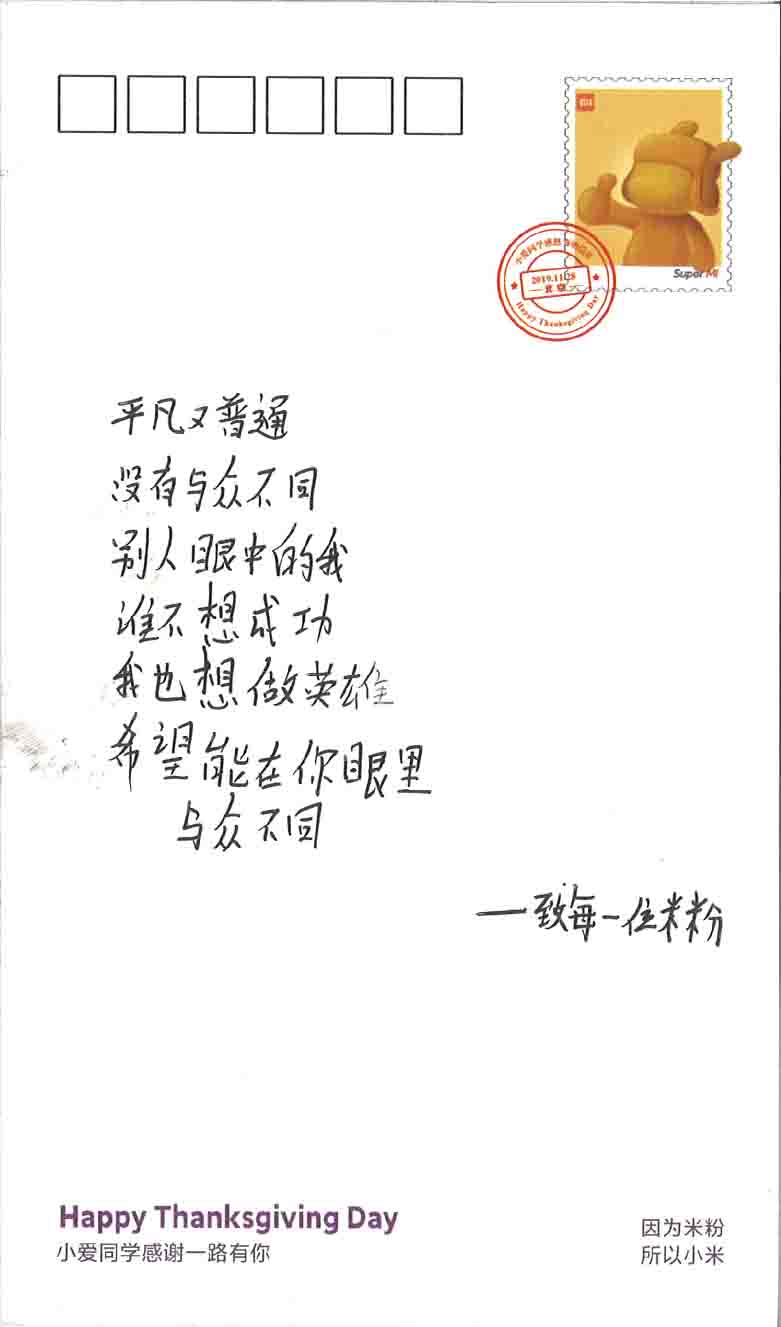 Super MI
2019.11.28
Happy Thanksgiving Day
平凡又普通
没有与众不同
别人眼中的我
谁不想成功
我也想做英雄
希望能在你眼里
与众不同
——致每一位米粉
Happy Thanksgiving Day
小爱同学感谢一路有你
因为米粉
所以小米